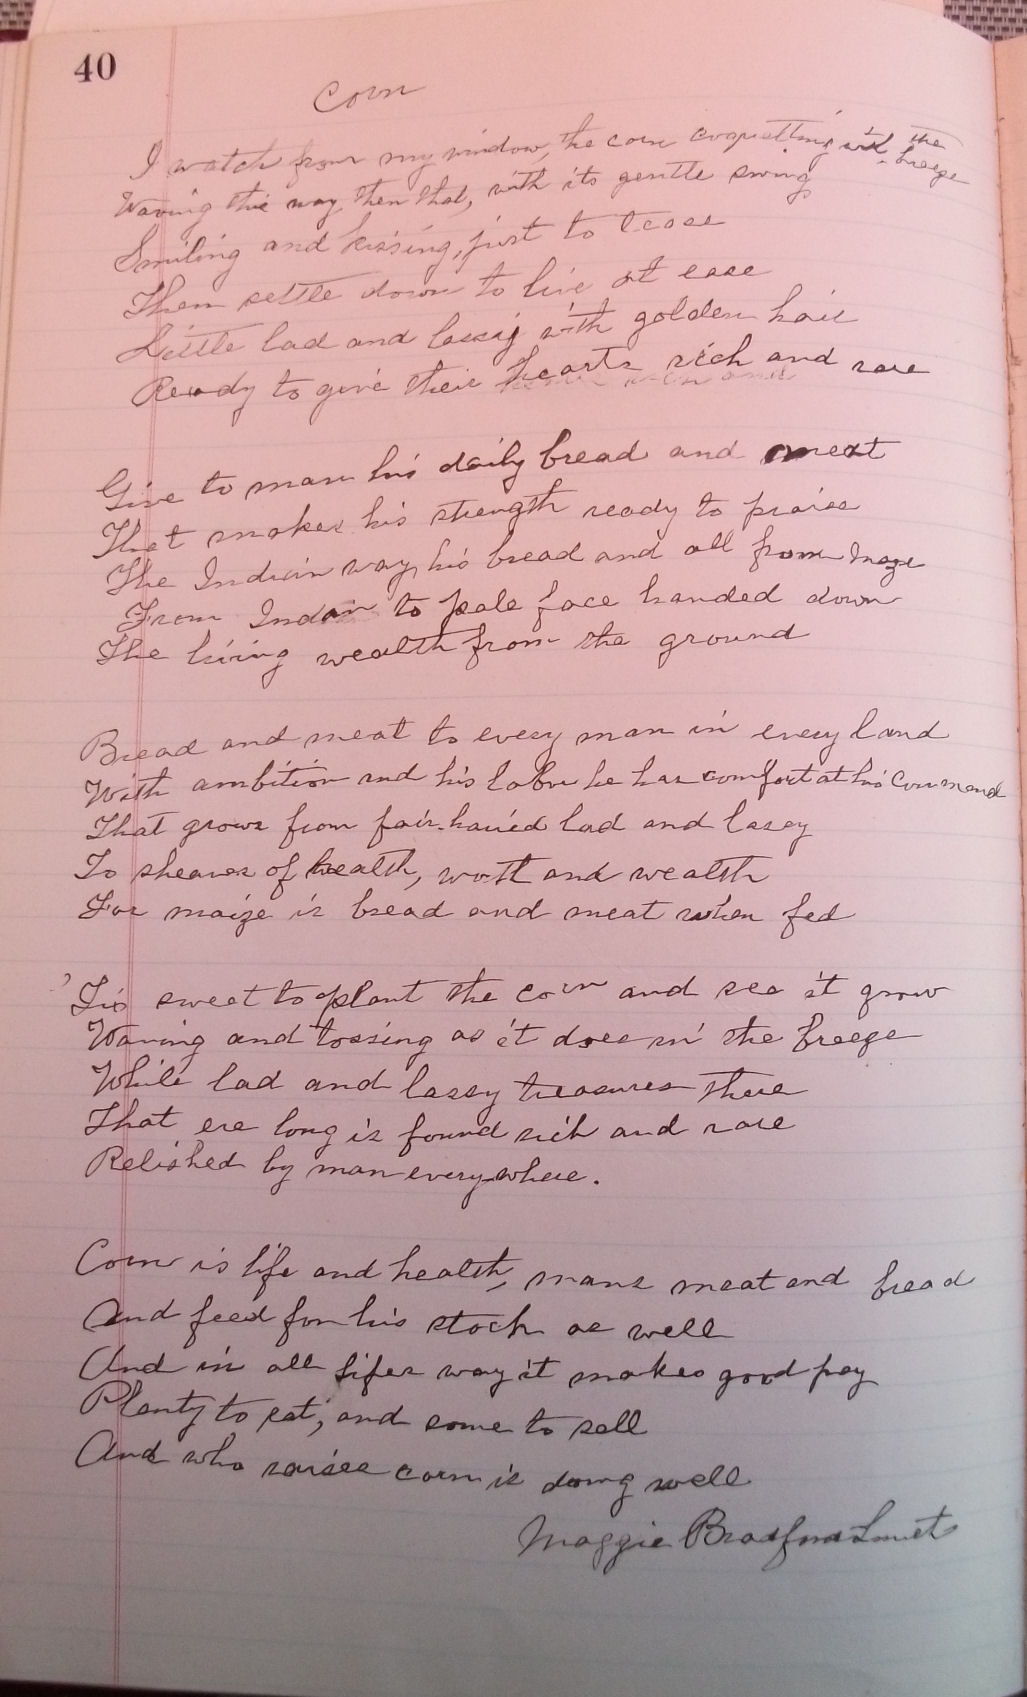 40
Corn
I watch from my window, the corn coquetting with the breeze
Waving this way then that, with its gentle swing
Smiling and kissing, just to tease
Then settle down to live at ease
Little lad and lassy with golden hair
Ready to give their hearts rich and rare
Give to man his daily bread and meat
That makes his strength ready to praise
The Indian way, his bread and all from maze
From Indian to pale face handed down
The living wealth from the ground
Bread and meat to every man in every land
With ambition and his labor he has comfort at his command
That grows from fair haired lad and lassy
To sheaves of health, and wealth
For maize is bread and meat when fed
'Tis sweet to plant the corn and see it grow
Waving and tossing as it does in the breeze
While lad and lassy treasures there
That ere long is found rich and rare
Relished by man everywhere.
Corn is life and health, mans meat and bread
And feed for his stock as well
And in all lifes way it makes good pay
Plenty to eat, and some to sell
And who raises corn is doing well
Maggie Bradford